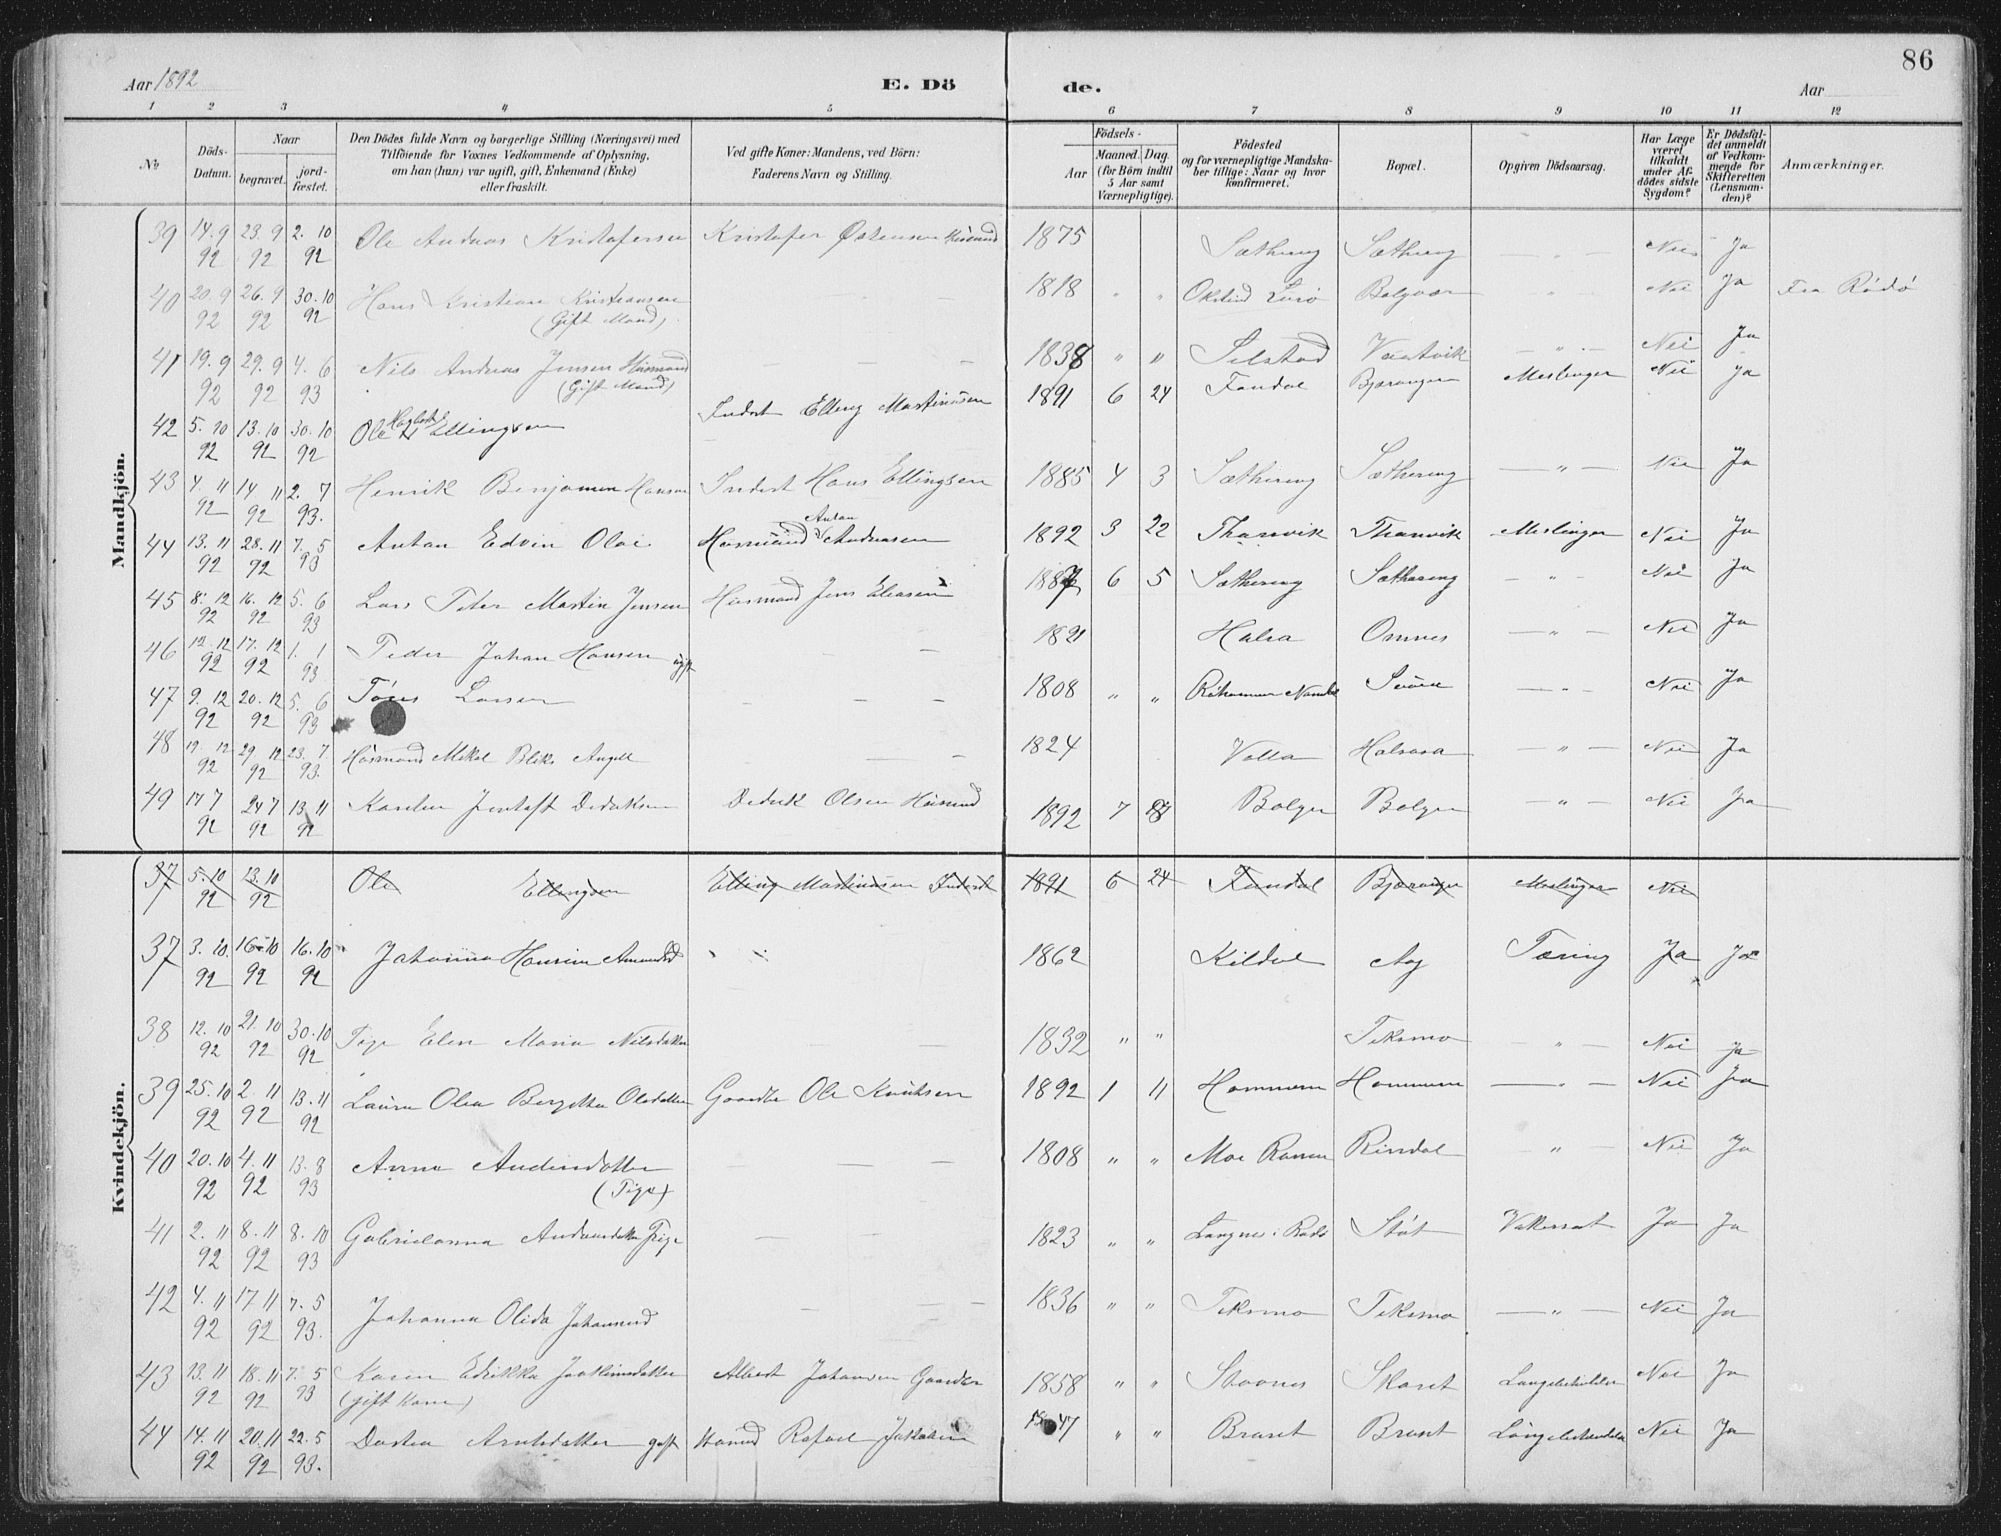 86
Aar 1892
E. Dö
de.
Aar
1 2 3 4 5 6 7 8 9 10 11 12
№
Döds-
Datum.
Naar
begravet.
jord-
fæstet.
Den Dödes fulde Navn og borgerlige Stilling (Næringsvei) med
Tilföiende for Voxnes Vedkommende af Oplysning,
om han (hun) var ugift, gift, Enkemand (Enke)
eller fraskilt.
Ved gifte Koner: Mandens, ved Börn:
Faderens Navn og Stilling.
Födsels-
Aar
Maaned. Dag.
(for Börn indtil
5 Aar samt
Værnepligtige).
Födested
og for værnepligtige Mandska-
ber tillige: Naar og hvor
konfirmeret.
Bopæl.
Opgiven Dödsaarsag.
Har Læge
været
tilkaldt
under Af-
dödes sidste
Sygdom?
Er Dödsfal-
det anmeldt
af Vedkom-
mende for
Skifteretten
(Lensman-
den)?
Anmærkninger.
Mandkjön.
39 14.9 92 23.9 92 2.10 92 Ole Andreas Kristofersen Kristofer Östensen Husmand 1875 Sætherng Sætherng — " — Nei Ja
40 20.9 92 26.9 92 30.10 92 Hans Kristian Kristiansen (Gift Mand) 1818 " " Lurö Bolgvær " Nei Ja Fra Rödö
41 19.9 92 29.9 92 4.6 93 Nils Andreas Jensen Husmand (Gift Mand) — — — 1838 " " Selstad — " — Nei Ja
42 5.10 92 13.10 92 30.10 92 Ole Ellingsen Inderst Elling Martinusen 1891 6 24 Fondal Bjæranger Meslinger Nei Ja
43 4.11 92 14.11 92 2.7 93. Henrik Benjamin Hansen Inderst Hans Ellingsen 1885 4 3 Sætherng Sætherng — " — Nei Ja
44 13.11 92 28.11 92 7.5 93 Anton Edvin Olai Husmand Anton Andreasen 1892 3 22 Thonvik Thonvik Meslinger Nei Ja
45 8.12 92 16.12 92 5.6 93 Lars Peter Martin Jensen Husmand Jens Eliasen 1887 6 5 Sætherng Sætherng " — Nei Ja
46 12.12 92 17.12 92 1.1 93 Peder Johan Hansen ugift — — 1821 Halsa Ornes — " — Nei Ja
47 9.12 92 20.12 92 5.6 93 Tönes Larsen — — 1808 " " — " — Nei Ja
48 19.12 92 29.12 92 23.7 93. Husmand Mikal Angell — — 1824 Valla Halsosa — " — Nei Ja
49 17 7 92 24 7 92 13.11 92 Didriksen Didrik Olsen Husmand 1892 7 Bolgen Bolgen — " — Nei Ja
Kvindekjön.
37 5.10 92 13.10 92 Ole Ellingsen Elling Martinusen Inderst 1891 6 24 Fondal Bjæranger Meslinger Nei
37 3.10. 92 16.10 92 16.10 92 Johanna Hansine Amundsd 1862 Kildal Aag Tæring Ja Ja
38 12.10 92 21.10 92 30.10 92 Pige Elen Maria Nilsdatter — — 1832 " " Teksmo — " — Nei Ja
39 25.10 92 2.11 92 13.11 92 Laura Olea Bergitha Olsdatter Gaardbr Ole Knutsen 1892 1 11 Hammern Hammern — " — Nei Ja
40 20.10 92 4.11 92 13.8 93 Anna Andersdatter (Pige) — — 1808 " " Moe Ranen Rindal " — Nei Ja
41 2.11 92 8.11 92 8.10 93 Gabrielanna Andreasdatter Pige — — 1823 " " Langnes i Rödö Stöt Vattersot Ja Ja
42 4.11 92 17.11 92 7.5 93. Johanna Olida Johannesd — — 1836 " " Teksmo Teksmo — " — Nei Ja
43 13.11 92 18.11 92 7.5 93 Karen Edrikka Joakimsdatter (gift Kone) Albert Johansen Gaardbr 1858 " " Stavnes Skaret Nei Ja
44 14.11 92 20.11 92 22.5 93. Dortea Arntsdatter gift Rafael Jakobsen 1847 " " Braset Braset Nei Ja